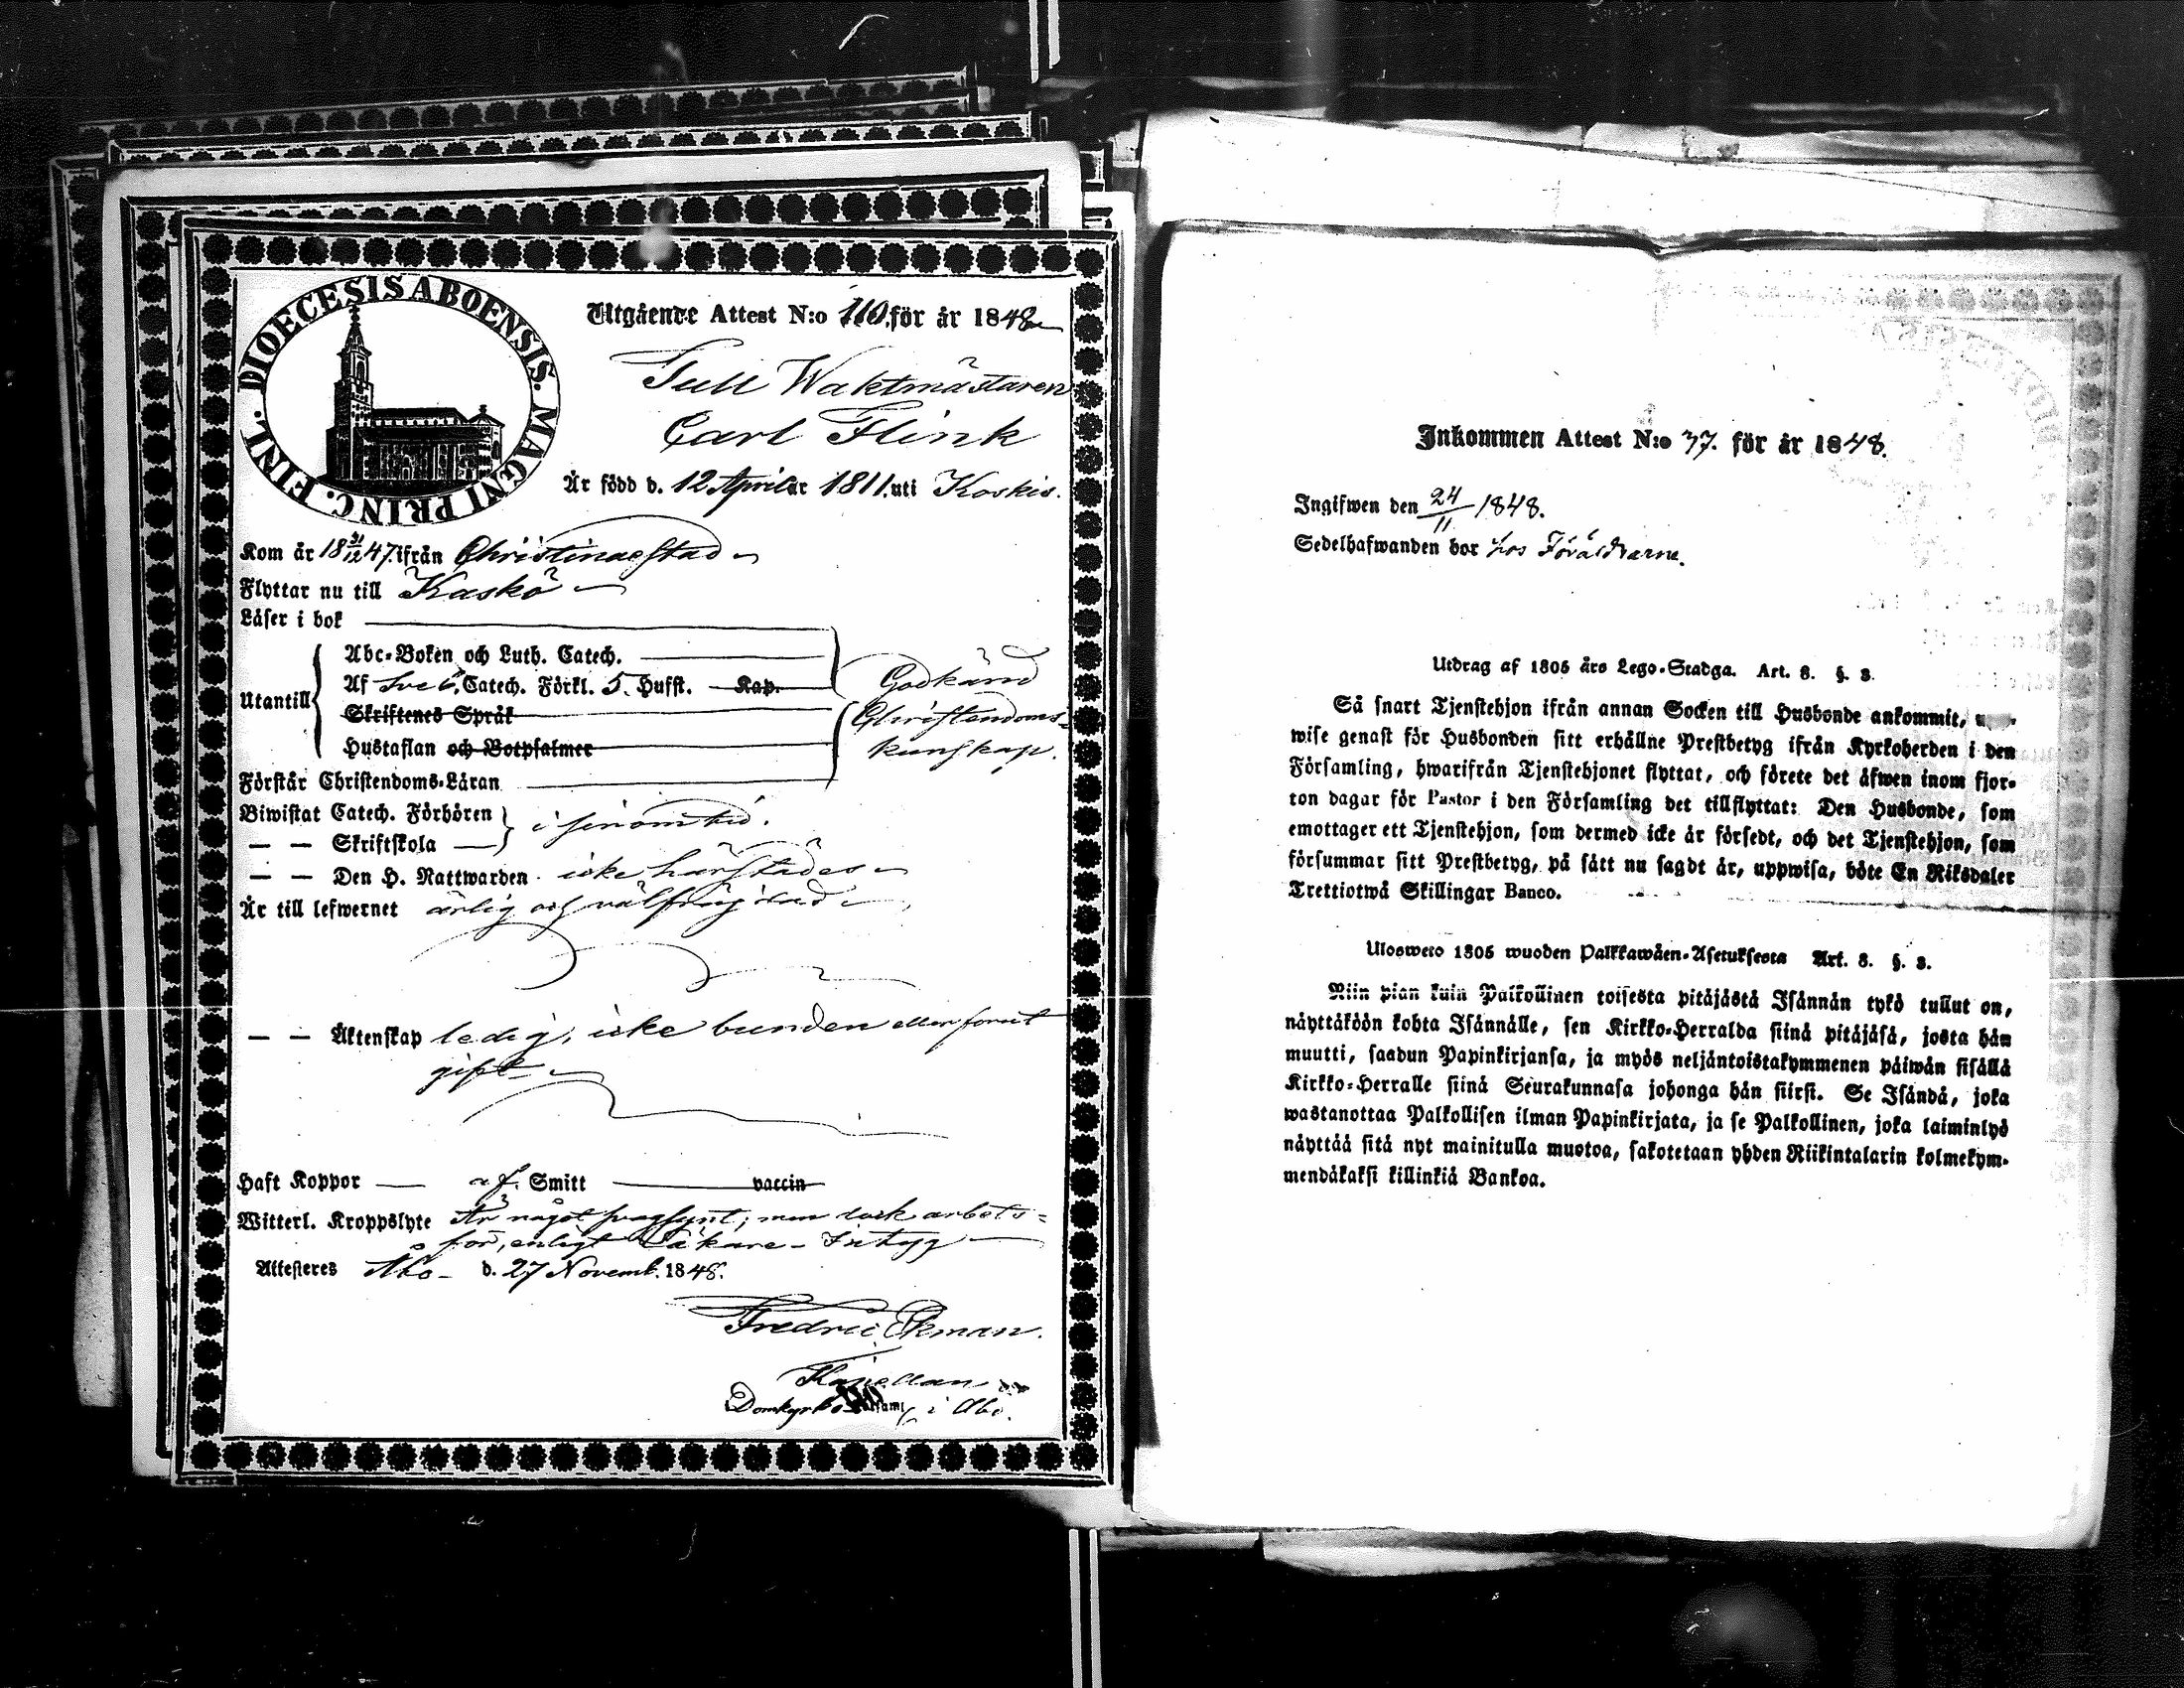 DIOECESIS ABOENSIS. MAGNI PRINC. FINL.
Utgående Attest N:o 110. för år 1848
Tull Waktmästaren
Carl Flink
Är född d. 12 April år 1811. uti Koskis.
Kom år 18 31/12 47. ifrån Christinaestad
Flyttar nu till Kaskö
Läser i bok
Utantill
Abc-Boken och Luth. Catech.
Af Sveb. Catech. Förkl. 5. Hufst. Kap.
Skriftenes Språk
Hustaflan och Botpsalmer
Godkänd
Christendoms-
kunskap.
Förstår Christendoms-Läran
Biwistat Catech. Förhören
— — Skriftskola —
i sinom tid.
— — Den H. Nattwarden icke härstädes
Är till lefwernet ärlig och välfräjdad
— — Äktenskap ledig, icke bunden eller förut
gift
Haft Koppor — af Smitt — vaccin
Witterl. Kroppslyte Är något svagsynt; men dock arbets-
för, enligt Läkare-Intyg
Attesteres Åbo d. 27 Novemb. 1848.
Fredric Ekman.
Kapellan
Domkyrko i Åbo.
Inkommen Attest N:o 37. för år 1848.
Ingifwen den 24/11 1848.
Sedelhafwanden bor hos Föräldrarne.
Utdrag af 1805 års Lego-Stadga. Art. 8. §. 3.
Så snart Tjenstehjon ifrån annan Socken till Husbonde ankommit,
wise genast för Husbonden sitt erhållne Prestbetyg ifrån Kyrkoherden i den
Församling, hwarifrån Tjenstehjonet flyttat, och förete det äfwen inom fjor-
ton dagar för Pastor i den Församling det tillflyttat: Den Husbonde, som
emottager ett Tjenstehjon, som dermed icke är försedt, och det Tjenstehjon, som
försummar sitt Prestbetyg, på sätt nu sagdt är, uppwisa, böte En Riksdaler
Trettiotwå Skillingar Banco.
Ulosweto 1805 wuoden Palkkawäen-Asetuksesta Art. 8. §. 3.
Niin pian kuin Palkollinen toisesta pitäjästä Isännän tykö tullut on,
näyttäköön kohta Isännälle, sen Kirkko-Herralda siinä pitäjäsä, josta hän
muutti, saadun Papinkirjansa, ja myös neljäntoistakymmenen päiwän sisällä
Kirkko-Herralle siinä Seurakunnasa johonga hän siirsi. Se Isändä, joka
wastanottaa Palkollisen ilman Papinkirjata, ja se Palkollinen, joka laiminlyö
näyttää sitä nyt mainitulla muotoa, sakotetaan yhden Riikintalarin kolmekym-
mendäkaksi killinkiä Bankoa.